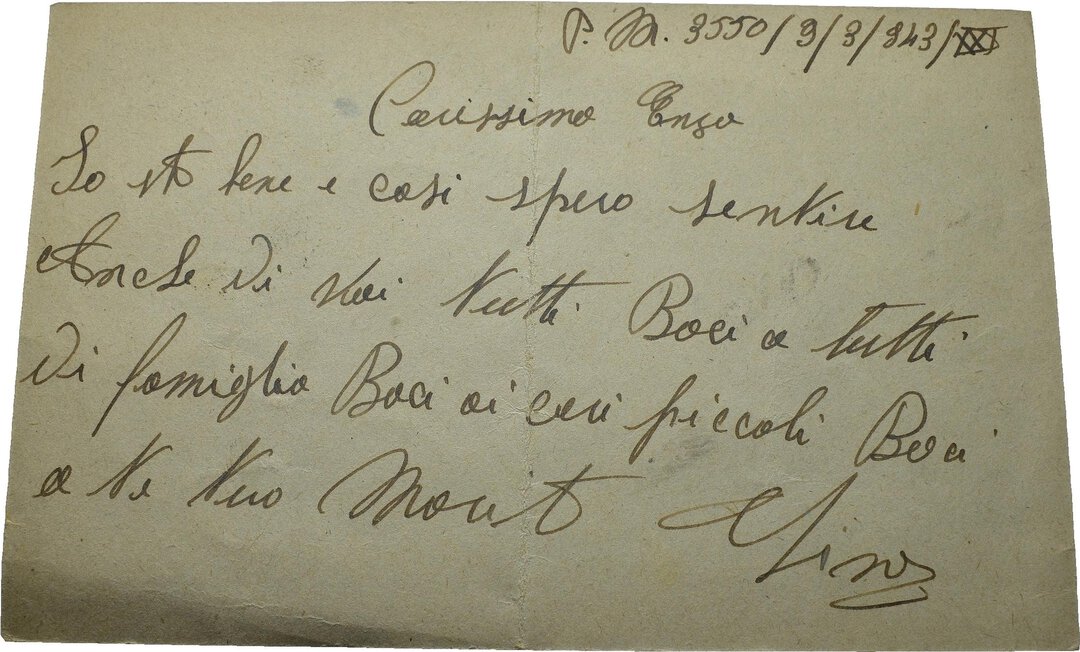 P. M. 3550/9/3/943/XXI
Carissimo Enzo
Io stò bene e così spero sentire
Anche di Voi tutti Baci a tutti
di famiglia Baci ai cari piccoli Baci
a te tuo Marit Gino